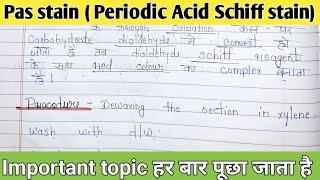 Pas stain ( Periodic Acid Schiff stain)
Carbohydrate dialdehyde में convert हो
जाता है तब dialdehyde schiff reagent
के साथ Red colour का complex बनाता
है।
Procedure - Dewaxing the section in xylene
wash with d/w.
Important topic हर बार पूछा जाता है